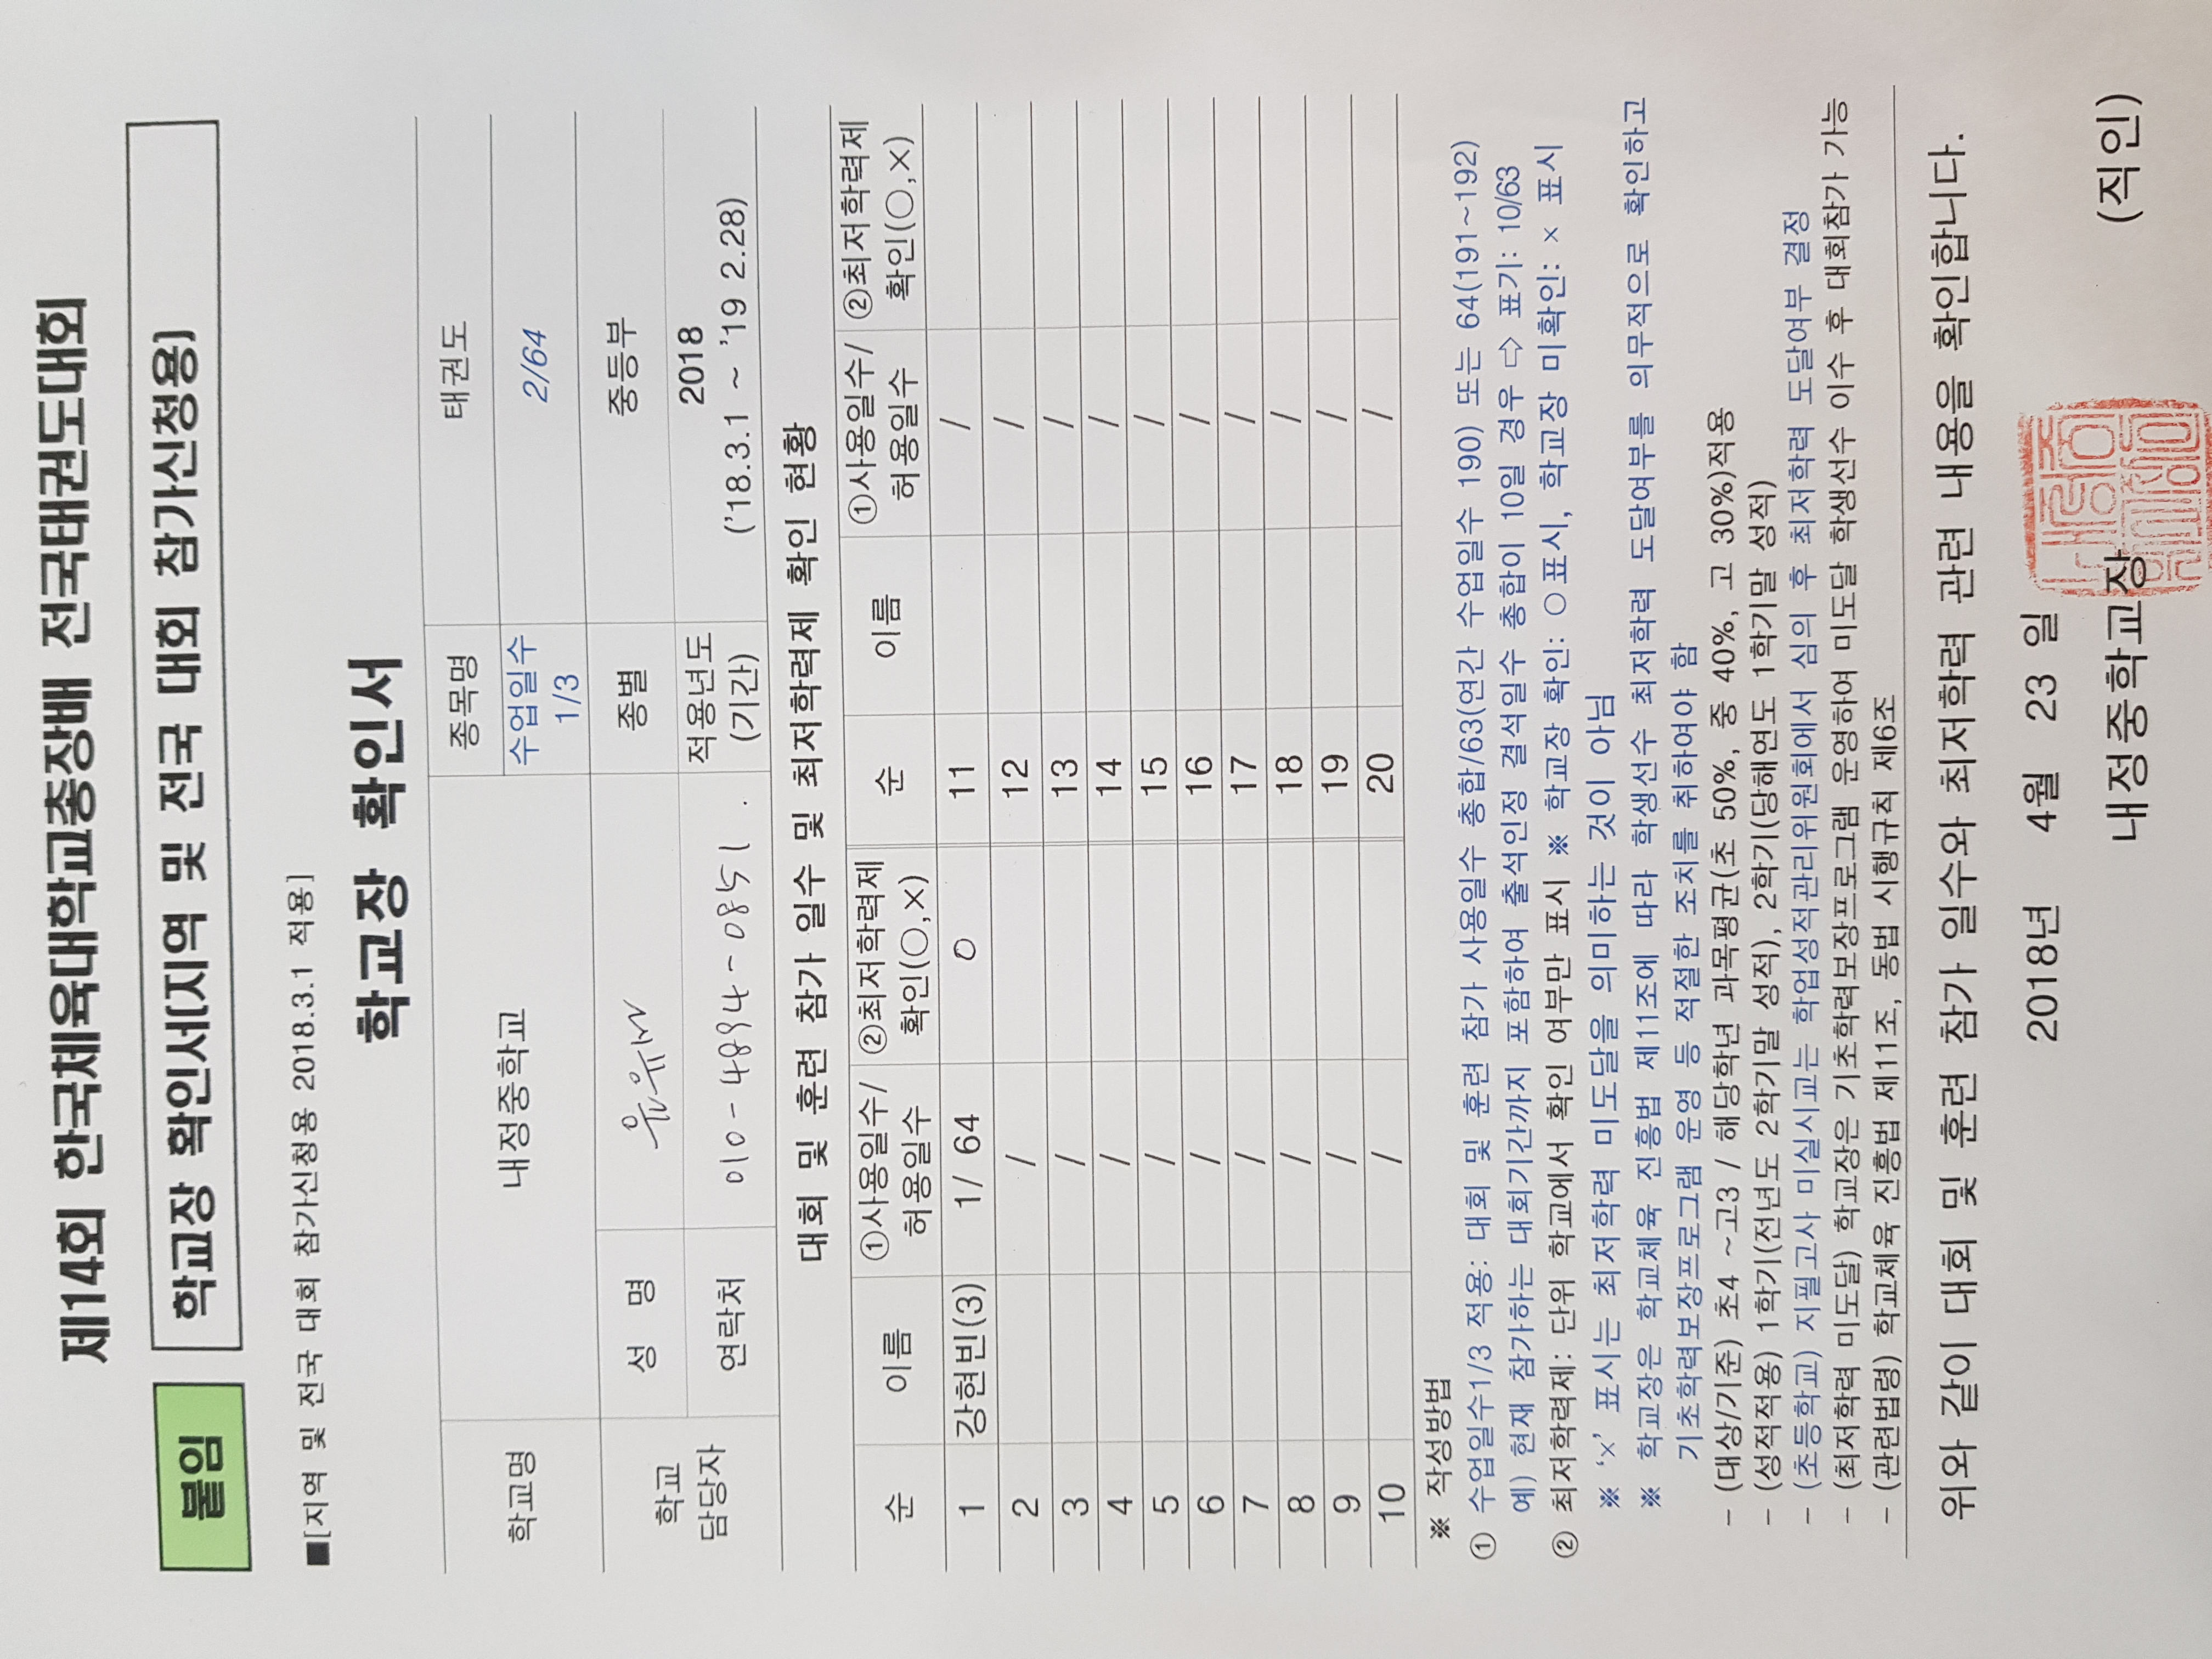 제14회 한국체육대학교총장배 전국태권도대회
붙임 학교장 확인서(지역 및 전국 대회 참가신청용)
■[지역 및 전국 대회 참가신청용 2018.3.1 적용]
학교장 확인서
학교명 내정중학교 종목명 태권도
수업일수 1/3 2/64
학교 담당자 성 명 종별 중등부
연락처 010-4894-0851 . 적용년도 (기간) 2018 ('18.3.1 ~ '19 2.28)
대회 및 훈련 참가 일수 및 최저학력제 확인 현황
순 이름 ①사용일수/허용일수 ②최저학력제 확인(○,×) 순 이름 ①사용일수/허용일수 ②최저학력제 확인(○,×)
1 강현빈(3) 1/ 64 ○ 11 /
2 / 12 /
3 / 13 /
4 / 14 /
5 / 15 /
6 / 16 /
7 / 17 /
8 / 18 /
9 / 19 /
10 / 20 /
※ 작성방법
① 수업일수1/3 적용: 대회 및 훈련 참가 사용일수 총합/63(연간 수업일수 190) 또는 64(191~192)
예) 현재 참가하는 대회기간까지 포함하여 출석인정 결석일수 총합이 10일 경우 ⇨ 표기: 10/63
② 최저학력제: 단위 학교에서 확인 여부만 표시 ※ 학교장 확인: ○표시, 학교장 미확인: × 표시
※ '×' 표시는 최저학력 미도달을 의미하는 것이 아님
※ 학교장은 학교체육 진흥법 제11조에 따라 학생선수 최저학력 도달여부를 의무적으로 확인하고
기초학력보장프로그램 운영 등 적절한 조치를 취하여야 함
- (대상/기준) 초4 ~고3 / 해당학년 과목평균(초 50%, 중 40%, 고 30%)적용
- (성적적용) 1학기(전년도 2학기말 성적), 2학기(당해연도 1학기말 성적)
- (초등학교) 지필고사 미실시교는 학업성적관리위원회에서 심의 후 최저학력 도달여부 결정
- (최저학력 미도달) 학교장은 기초학력보장프로그램 운영하여 미도달 학생선수 이수 후 대회참가 가능
- (관련법령) 학교체육 진흥법 제11조, 동법 시행규칙 제6조
위와 같이 대회 및 훈련 참가 일수와 최저학력 관련 내용을 확인합니다.
2018년 4월 23 일
내정중학교장 (직인)